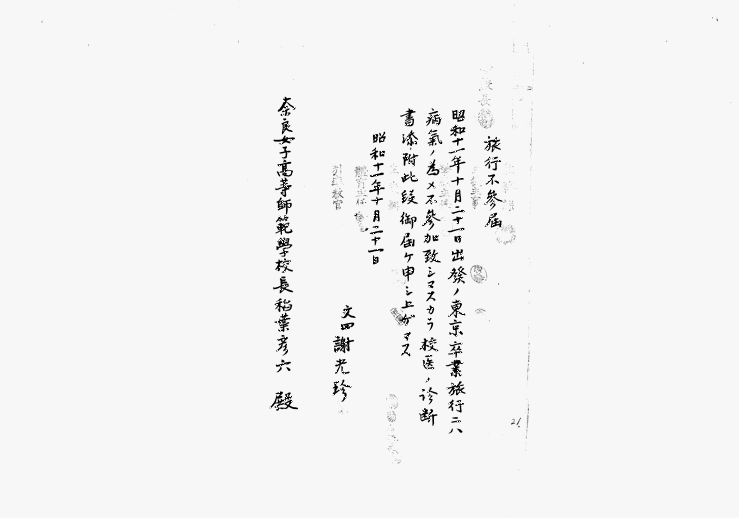 旅行不參届
昭和十一年十月二十一日出發ノ東京卒業旅行ニハ
病氣ノ為メ不參加致シマスカラ校医ノ診断
書添附此段御届ケ申シ上ゲマス
昭和十一年十月二十一日
文四 謝光珍
奈良女子高等師範學校長稻葉彦六 殿
21